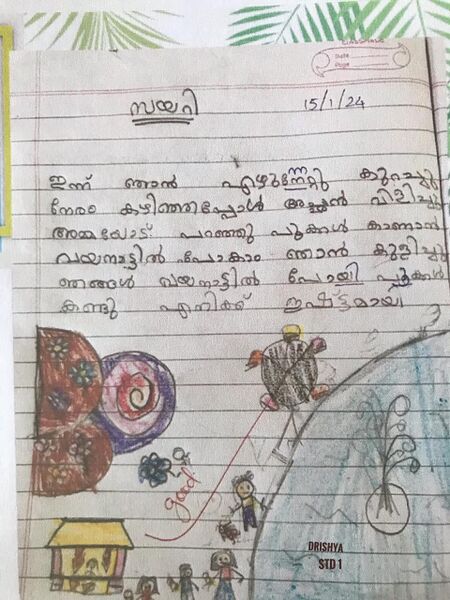 CLASSMATE
Date
Page
സയറി
15/1/24
ഇന്ന് ഞാൻ എഴുന്നേറ്റു കുറച്ചു
നേരം കഴിഞ്ഞപ്പോൾ അച്ഛൻ വിളിച്ചു
അമ്മയോട് പറഞ്ഞു പൂക്കൾ കാണാൻ
വയനാട്ടിൽ പോകാം ഞാൻ കുളിച്ചു
ഞങ്ങൾ വയനാട്ടിൽ പോയി പൂക്കൾ
കണ്ടു എനിക്ക് ഇഷ്ട്ടമായി
good
DRISHYA
STD 1